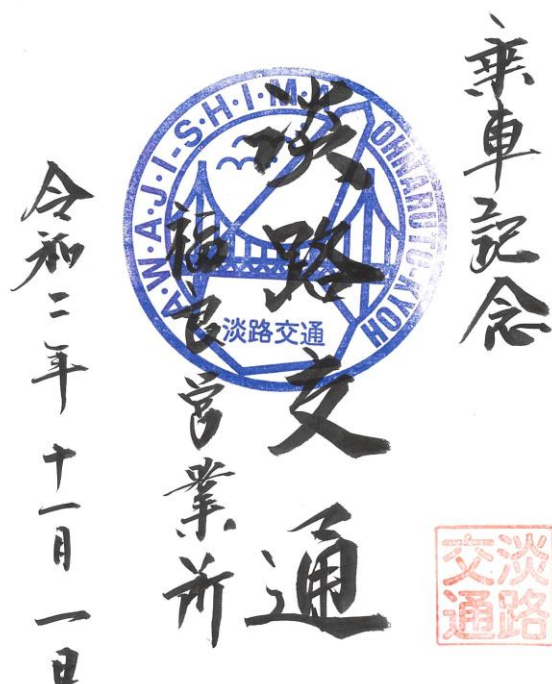 乗車記念
淡路交通
福良営業所
令和二年十一月一日
A·W·A·J·I·S·H·I·M·A
OHNARUTO-KYOH
淡路交通
淡路
交通